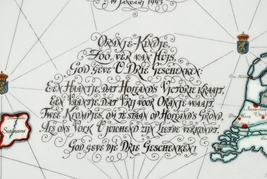 19 Januari 1943
Oranje-Kindje,
Zoo ver van Huis,
God geve U Drie Geschenken:
Een Haantje, dat Holland's Victorie kraait,
Een Vaantje, dat Vrij voor Oranje waait,
Twee Klompjes, om te staan op Holland's Grond,
Als ons Volk U juichend zijn Liefde verkondt.
God geve die Drie Geschenken!
Suriname